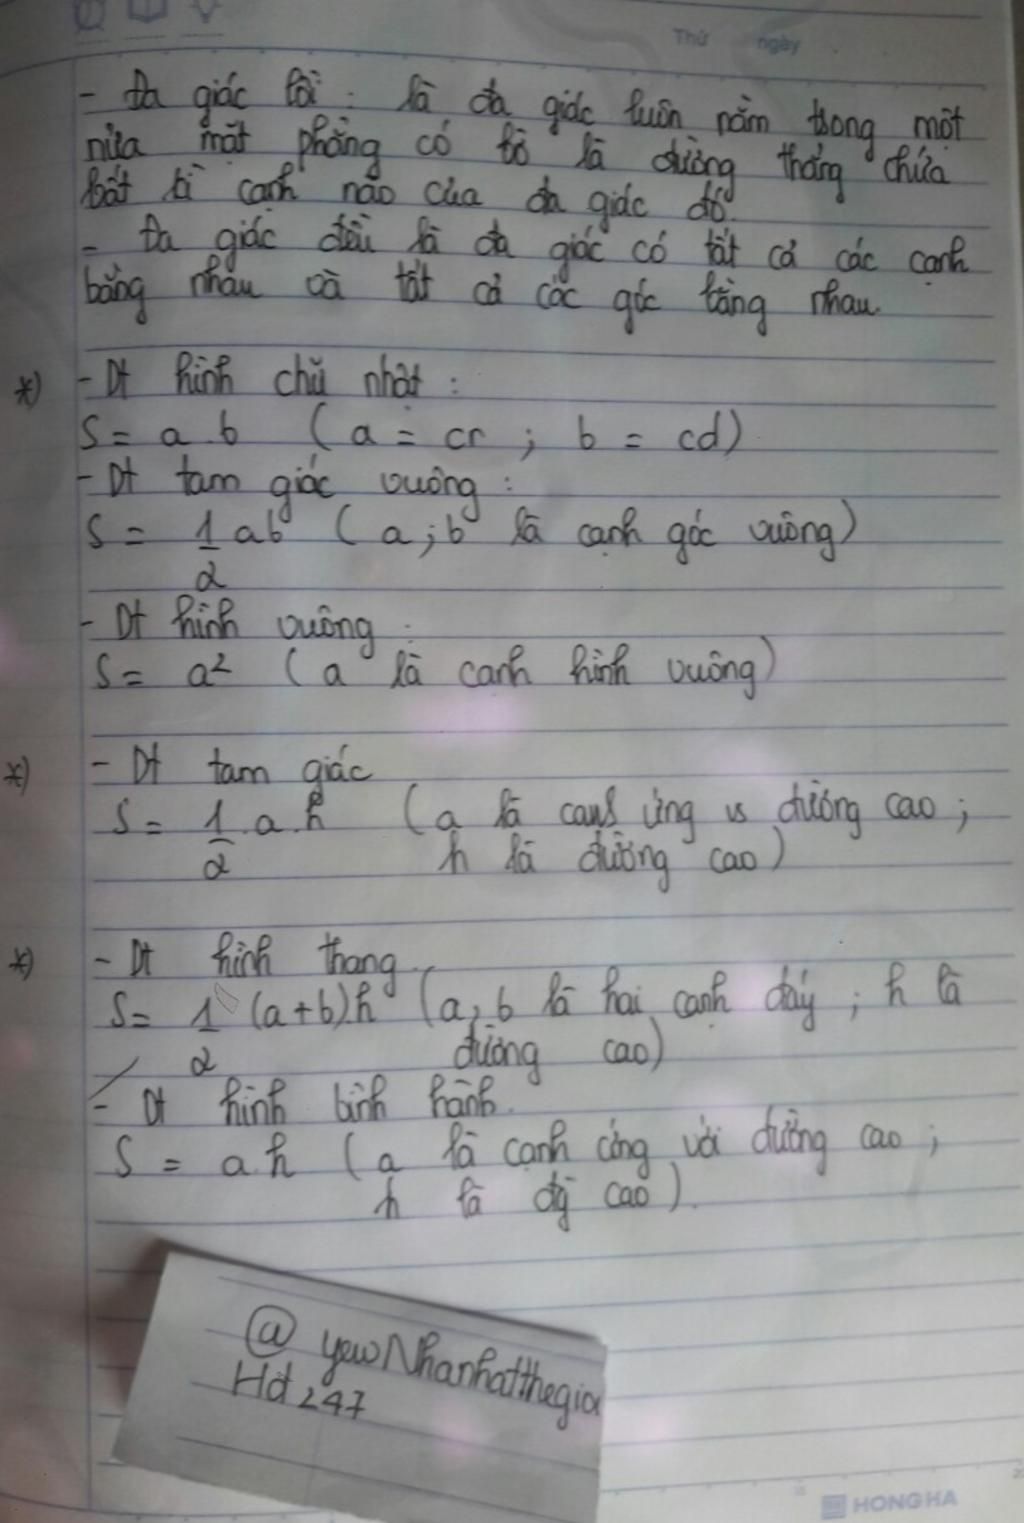 Thứ ngày
- Đa giác lồi : là đa giác luôn nằm trong một
nửa mặt phẳng có bờ là đường thẳng chứa
bất kì cạnh nào của đa giác đó.
- Đa giác đều là đa giác có tất cả các cạnh
bằng nhau và tất cả các góc bằng nhau.
*) - Dt hình chữ nhật :
S = a.b ( a = cr ; b = cd)
- Dt tam giác vuông :
S = 1/2 ab ( a ; b là cạnh góc vuông)
- Dt hình vuông :
S = a² ( a là cạnh hình vuông)
*) - Dt tam giác
S = 1/2 .a.h ( a là cạnh ứng vs đường cao ;
h là đường cao )
*) - Dt hình thang
S = 1/2 (a+b)h (a, b là hai cạnh đáy ; h là
đường cao)
- Dt hình bình hành.
S = a.h ( a là cạnh ứng với đường cao ;
h là đg cao ).
@ yewNhanhatthegioi
Hd247
HONG HA